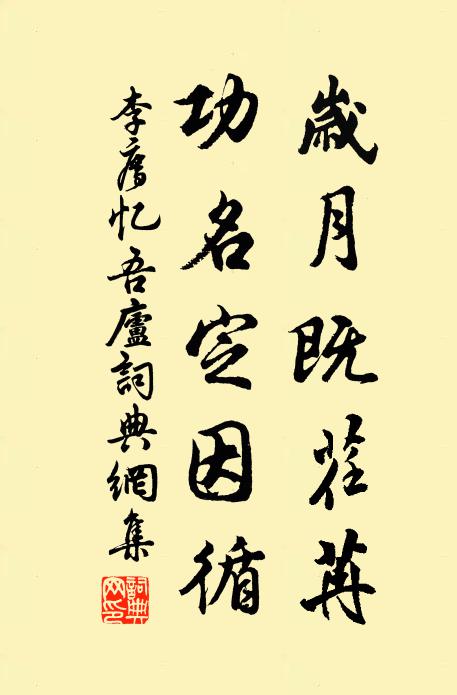 歲月既荏苒
功名定因循
李廌忆吾廬詞典網集
詞典
网印